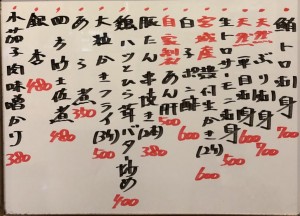 鮪トロ刺身 700
天然ぶり刺身 700
天然平目刺身 600
生トロサーモン刺身 600
宮城産殻付生かき(2ヶ) 600
白子ポン酢 600
自家製あん肝 500
豚たん串焼き(2本) 380
鶏ハツとひら茸バター炒め 400
大粒かきフライ(3ヶ) 500
あら煮 380
四方竹土佐煮 480
銀杏 480
小茄子肉味噌かけ 380